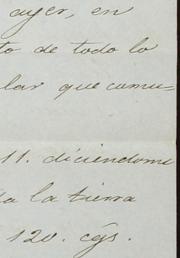 ayer, en
to de todo lo
lar que comu=
11. diciendome
da la tierra
120. cjs.